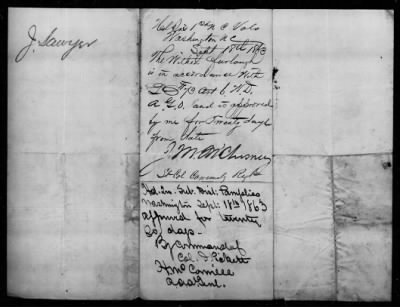 J. Sawyer
Hd Qrs 1st N C Vols
Washington N C
Sept 18th 1863
The Within Furlough
is in accordance with
A G O. and is approved
by me for Twenty days
from date
Lt Col Commdg Regt
Hd. Qrs. Sub. Dist. Pamlico
Washington Sept: 18th 1863
approved for twenty
(20) days-
By Command of
Col.
A.A.A. Genl.